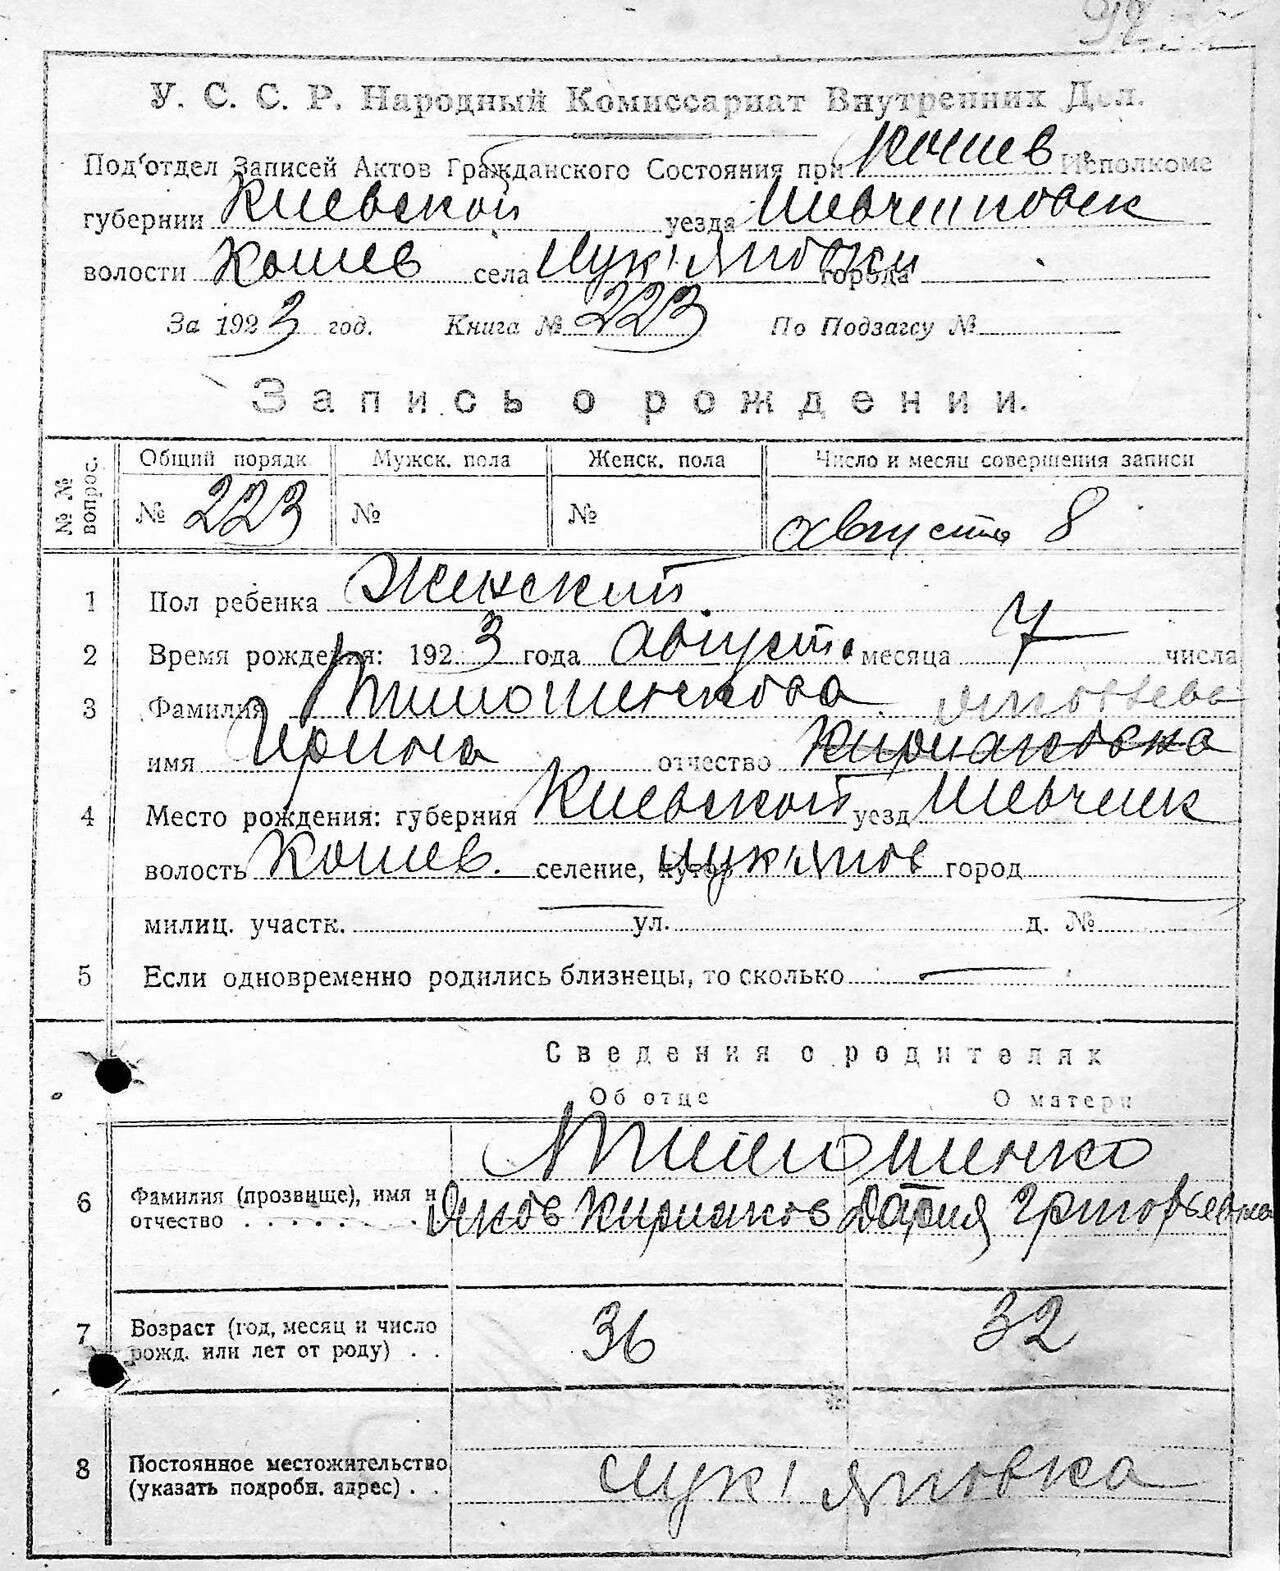 92
У. С. С. Р. Народный Комиссариат Внутренних Дел.
Под'отдел Записей Актов Гражданского Состояния при Кошев Исполкоме
губернии Киевской уезда Шевченковск
волости Кошев села Лук'яновки города
За 1923 год. Книга № 223 По Подзагсу №
Запись о рождении.
№ № вопрос. Общий порядк. Мужск. пола Женск. пола Число и месяц совершения записи
№ 223 № № августа 8
1 Пол ребенка Женский
2 Время рождения: 1923 года августа месяца 7 числа
3 Фамилия Тимошенкова Яковлева
имя Ирина отчество Кириаковна
4 Место рождения: губерния Киевской уезд Шевченк
волость Кошев. селение, хутор Лук'янов город
милиц. участк. ул. д. №
5 Если одновременно родились близнецы, то сколько
Сведения о родителях
Об отце О матери
Тимошенко
6 Фамилия (прозвище), имя и отчество Яков Кириаков Дария Григорьевна
7 Возраст (год, месяц и число рожд. или лет от роду) 36 32
8 Постоянное местожительство (указать подробн. адрес) Лук'яновка